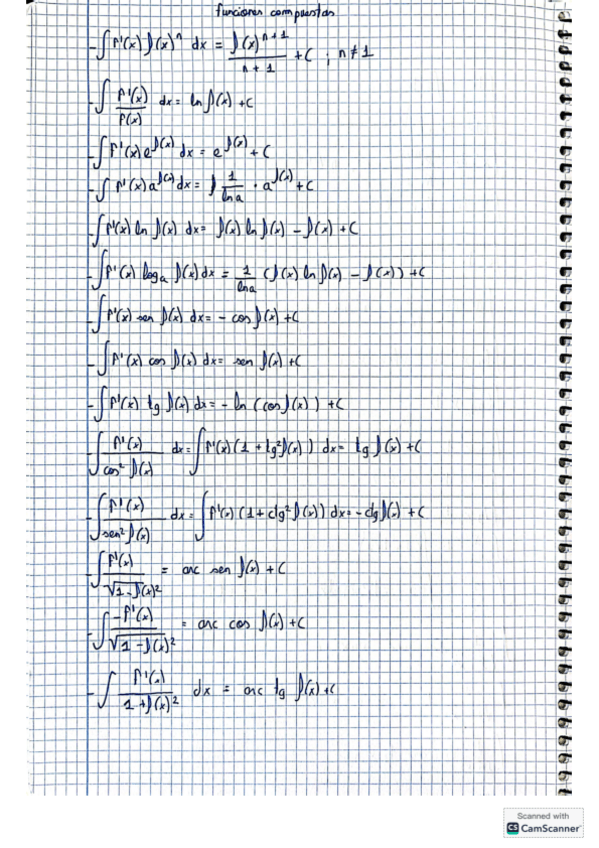 funciones compuestas
- ∫ f'(x) f(x)ⁿ dx = f(x)ⁿ⁺¹ / n + 1 + C ; n ≠ 1
- ∫ f'(x) / f(x) dx = ln f(x) + C
- ∫ f'(x) e^f(x) dx = e^f(x) + C
- ∫ f'(x) a^f(x) dx = 1 / ln a · a^f(x) + C
- ∫ f'(x) ln f(x) dx = f(x) ln f(x) - f(x) + C
- ∫ f'(x) logₐ f(x) dx = 1 / ln a (f(x) ln f(x) - f(x)) + C
- ∫ f'(x) sen f(x) dx = - cos f(x) + C
- ∫ f'(x) cos f(x) dx = sen f(x) + C
- ∫ f'(x) tg f(x) dx = - ln (cos f(x)) + C
- ∫ f'(x) / cos² f(x) dx = ∫ f'(x) (1 + tg² f(x)) dx = tg f(x) + C
- ∫ f'(x) / sen² f(x) dx = ∫ f'(x) (1 + ctg² f(x)) dx = - ctg f(x) + C
- ∫ f'(x) / √1 - f(x)² = arc sen f(x) + C
- ∫ -f'(x) / √1 - f(x)² = arc cos f(x) + C
- ∫ f'(x) / 1 + f(x)² dx = arc tg f(x) + C
Scanned with
CS CamScanner